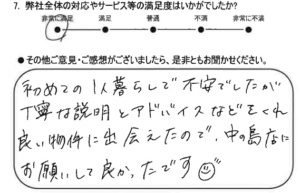 7. 弊社全体の対応やサービス等の満足度はいかがでしたか?
非常に満足 満足 普通 不満 非常に不満
●その他ご意見・ご感想がございましたら、是非ともお聞かせください。
初めての1人暮らしで不安でしたが
丁寧な説明とアドバイスなどをくれ
良い物件に出会えたので、中の島店に
お願いして良かったです